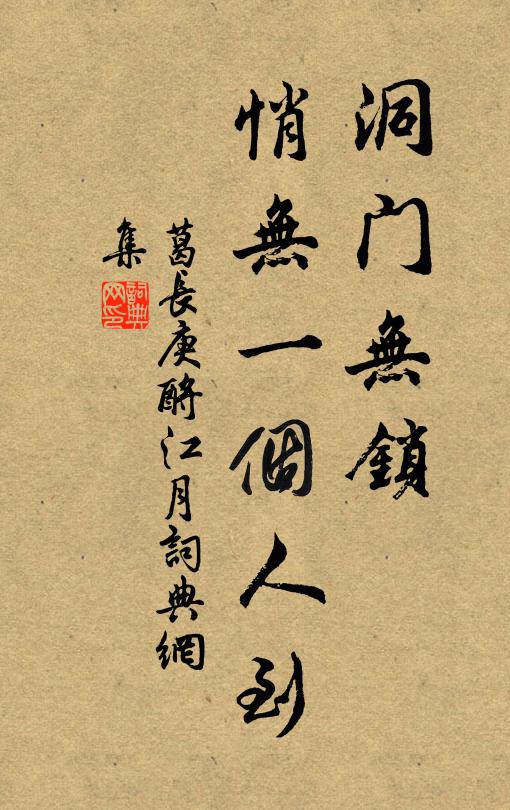 洞门無鎖
悄無一個人到
葛長庚酹江月詞典網
集
詞典网印